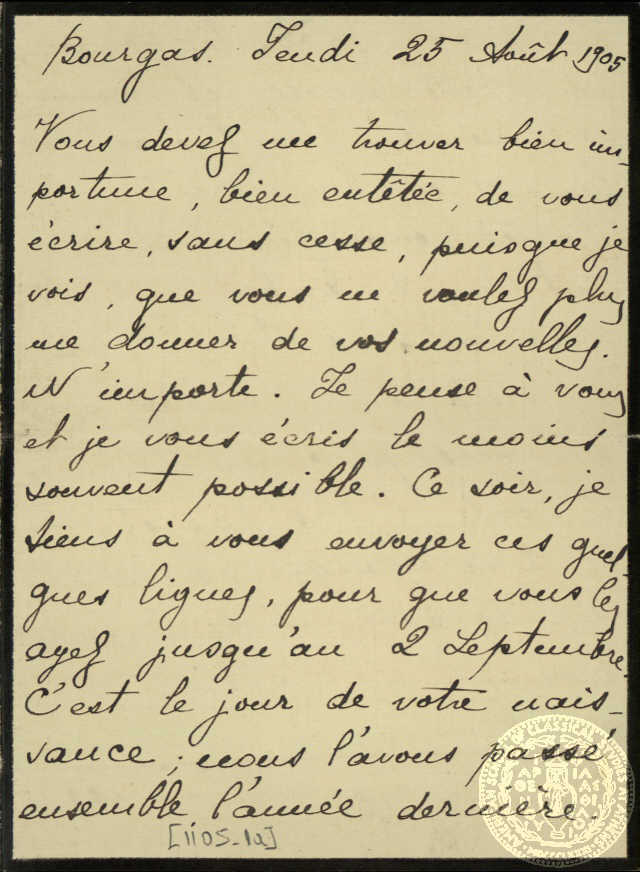 Bourgas. Jeudi 25 Août 1905
Vous devez me trouver bien im-
portune, bien entêtée, de vous
écrire, sans cesse, puisque je
vois, que vous ne voulez plus
me donner de vos nouvelles.
N'importe. Je pense à vous
et je vous écris le moins
souvent possible. Ce soir, je
tiens à vous envoyer ces quel-
ques lignes, pour que vous les
ayez jusqu'au 2 Septembre.
C'est le jour de votre nais-
sance; nous l'avons passé
ensemble l'année dernière.
[1105-1a]